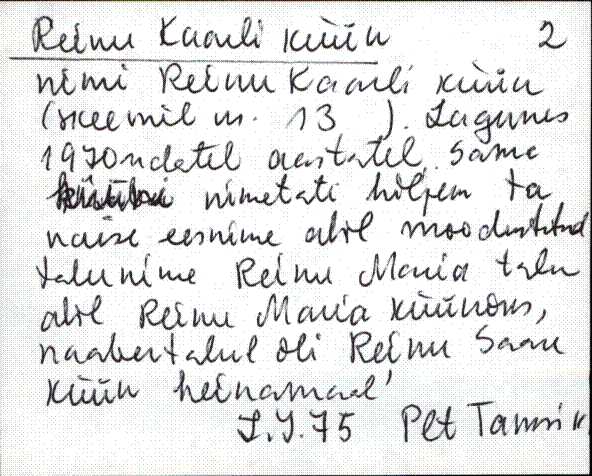 Reinu Kaarli küün 2
nimi Reinu Kaarli küün
(skeemil nr. 13 ). Lagunes
1970ndatel aastatel. Sama
nimetati hiljem ta
naise eesnime abil moodustatud
talunime Reinu Maria talu
abil Reinu Maria küünõks,
naabertalul oli Reinu Saaru
küün heinamaal'
I.Y.75 Plt Tamsik